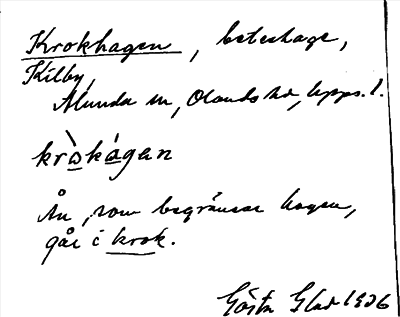 Krokhagen, beteshage,
Kilby,
Alunda sn, Olands hd, Upps. l.
kròkágen
Ån, som begränsar hagen,
går i krok.
Gösta Glad 1926